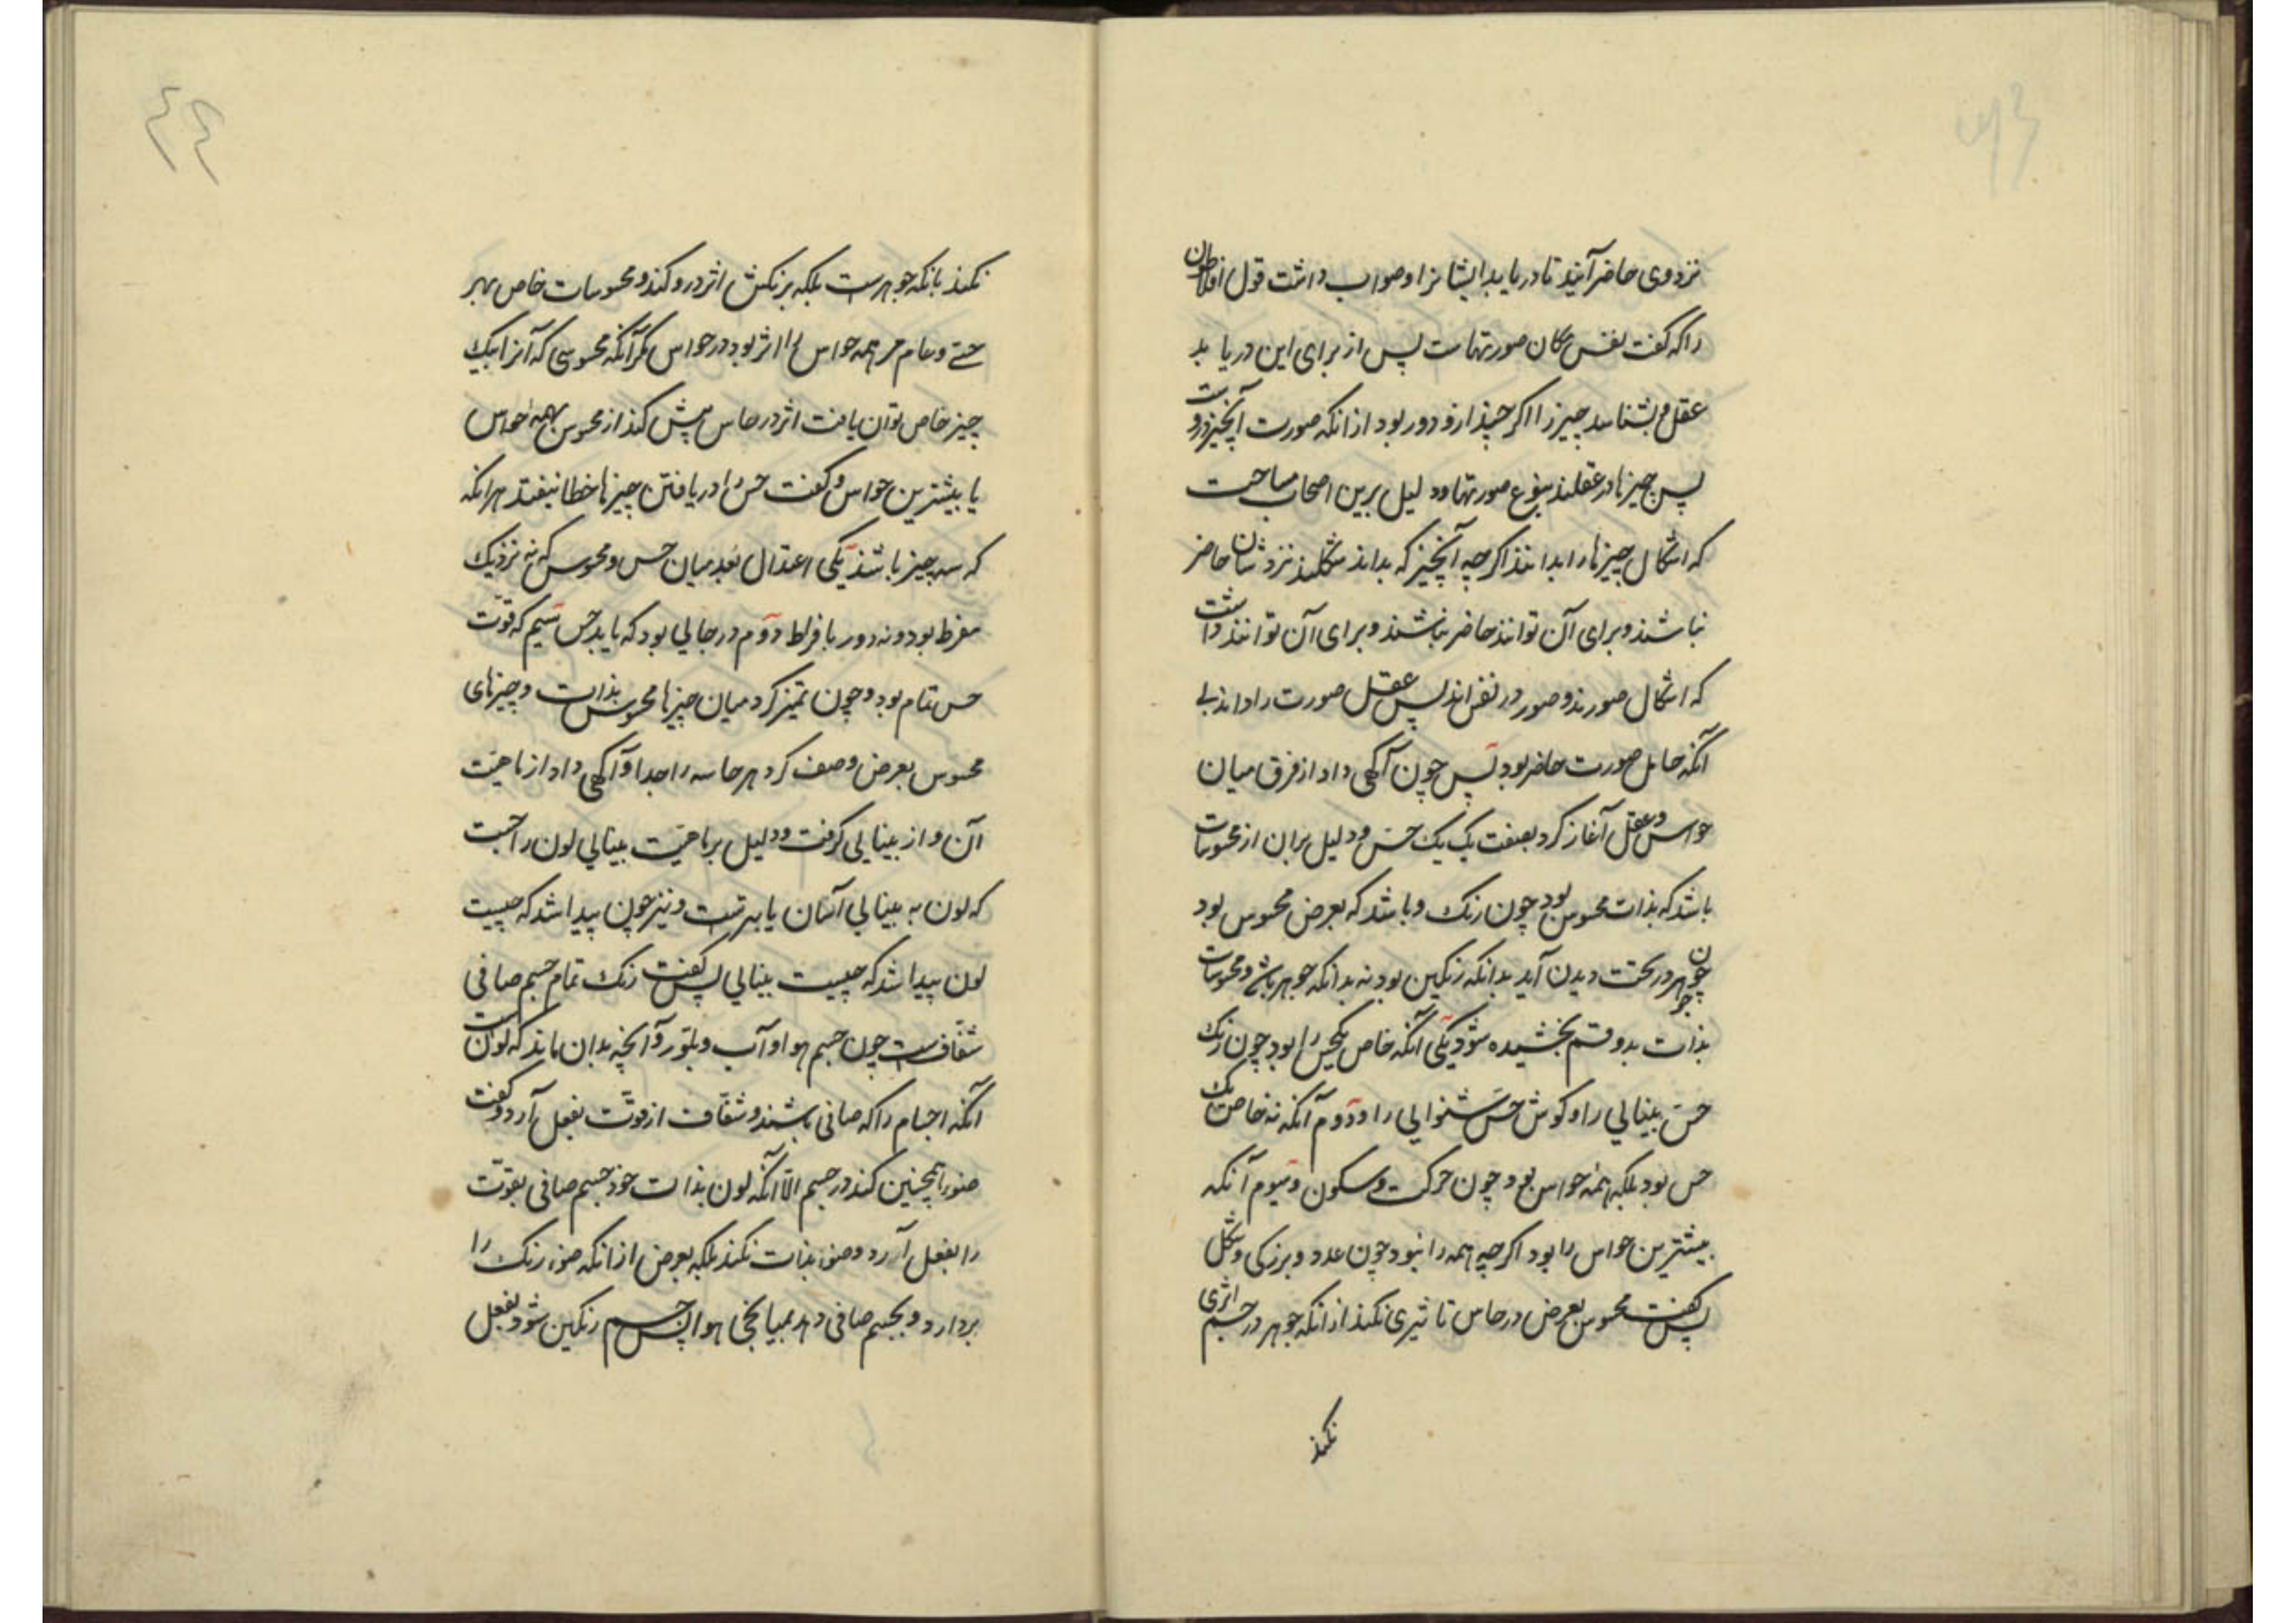 ۴۳
نزد وی حاضر آیند تا دریابد ایشانرا و صواب داشت قول افلاطن
را که گفت نفس مکان صورتهاست پس از برای این دریابد
عقل و بشناسد چیز را اگر چیز ازو دور بود از انکه صورت آنچیز دروست
پس چیزها در عقلند بنوع صورتها و دلیل برین اصحاب مساحت
که اشکال چیزها را بدانند اگر چه آنچیز که بداند شکلند نزدشان حاضر
نباشند و برای آن توانند حاضر نباشند و برای آن توانند داشت
که اشکال صورند و صور در نفس اند پس عقل صورت را داند بی
آنکه حامل صورت حاضر بود پس چون آگهی داد از فرق میان
حواس و عقل آغاز کرد بصفت یک یک حس و دلیل بران از محسوسات
باشد که بذات محسوس بود چون رنک و باشد که بعرض محسوس بود
چون جوهر در تحت دیدن آید بدانکه رنکین بود نه بدانکه جوهر باشد و محسوسات
بذات بدو قسم بخشیده شود یکی آنکه خاص یکحس را بود چون رنک
حس بینایی را و کوش حس شنوایی را و دوم آنکه نه خاص یک
حس بود بلکه همه حواس بود چون حرکت و سکون و سیوم آنکه
بیشترین حواس را بود اگر چه همه را نبود چون عدد و بزرکی و شکل
پس گفت محسوس بعرض در حاس تاثیری نکند از انکه جوهر در جسم اثری
نکند
۴۴
نکند بانکه جوهرست بلکه برنکش اثر درو کند و محسوسات خاص بهر
حسی و عام مر همه حواس را اثر بود در حواس مکر آنکه محسوسی که آنرا بیک
چیز خاص توان یافت اثر در حاس بیش کند از محسوس بهمه حواس
یا بیشترین حواس و گفت حس را در یافتن چیزها خطا نیفتد هرانکه
که سه چیز باشد یکی اعتدال بعد میان حس و محسوس که نه نزدیک
مفرط بود و نه دور بافراط دوم در حالی بود که باید حس سیم که قوت
حس تمام بود و چون تمیز کرد میان چیزها محسوس بذات و چیزهای
محسوس بعرض وصف کرد هر حاسه را جدا و آگهی داد از ماهیت
آن و از بینایی گرفت و دلیل بر ماهیت بینایی لون را جست
که لون به بینایی آسان یاب ترست و نیز چون پیدا شد که چیست
لون پیدا شد که چیست بینایی پس گفت رنک تمام جسم صافی
شفاف است چون جسم هوا و آب و بلور و آنچه بدان ماند که لونست
آنکه اجسام را که صافی باشند و شفاف از قوت بفعل آرد و گفت
ضو را همچنین کند در جسم الا آنکه لون بذات خود جسم صافی بقوت
را بفعل آرد و ضو بذات نکند بلکه بعرض از انکه ضو رنک را
بردارد و بجسم صافی دهد بمیانجی هوا پس جسم رنکین شود بفعل